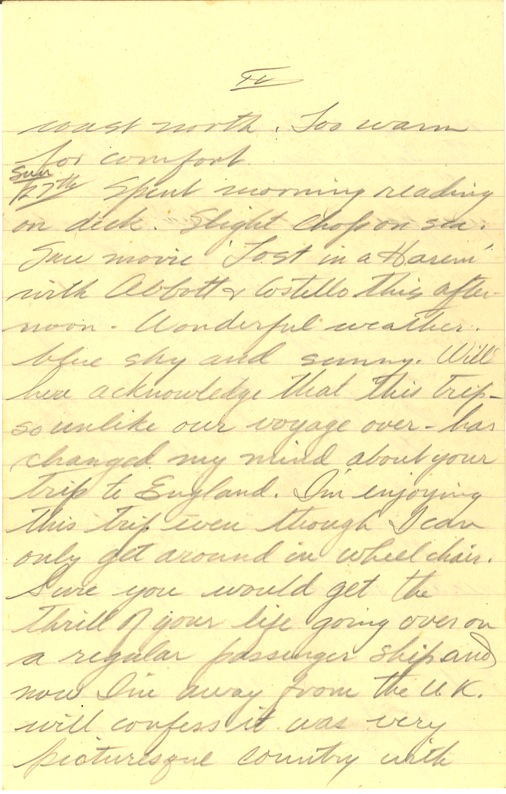 IV
coast north. Too warm
for comfort
Sun
27th Spent morning reading
on deck. Slight chop on sea.
Saw movie 'Lost in a Harem'
with Abbott & Costello this after-
noon - Wonderful weather.
blue sky and sunny. Will
here acknowledge that this trip -
so unlike our voyage over - has
changed my mind about your
trip to England. I'm enjoying
this trip even though I can
only get around in wheel chair.
Sure you would get the
thrill of your life going over on
a regular passenger ship and
now I'm away from the U.K.
will confess it was very
picturesque country with